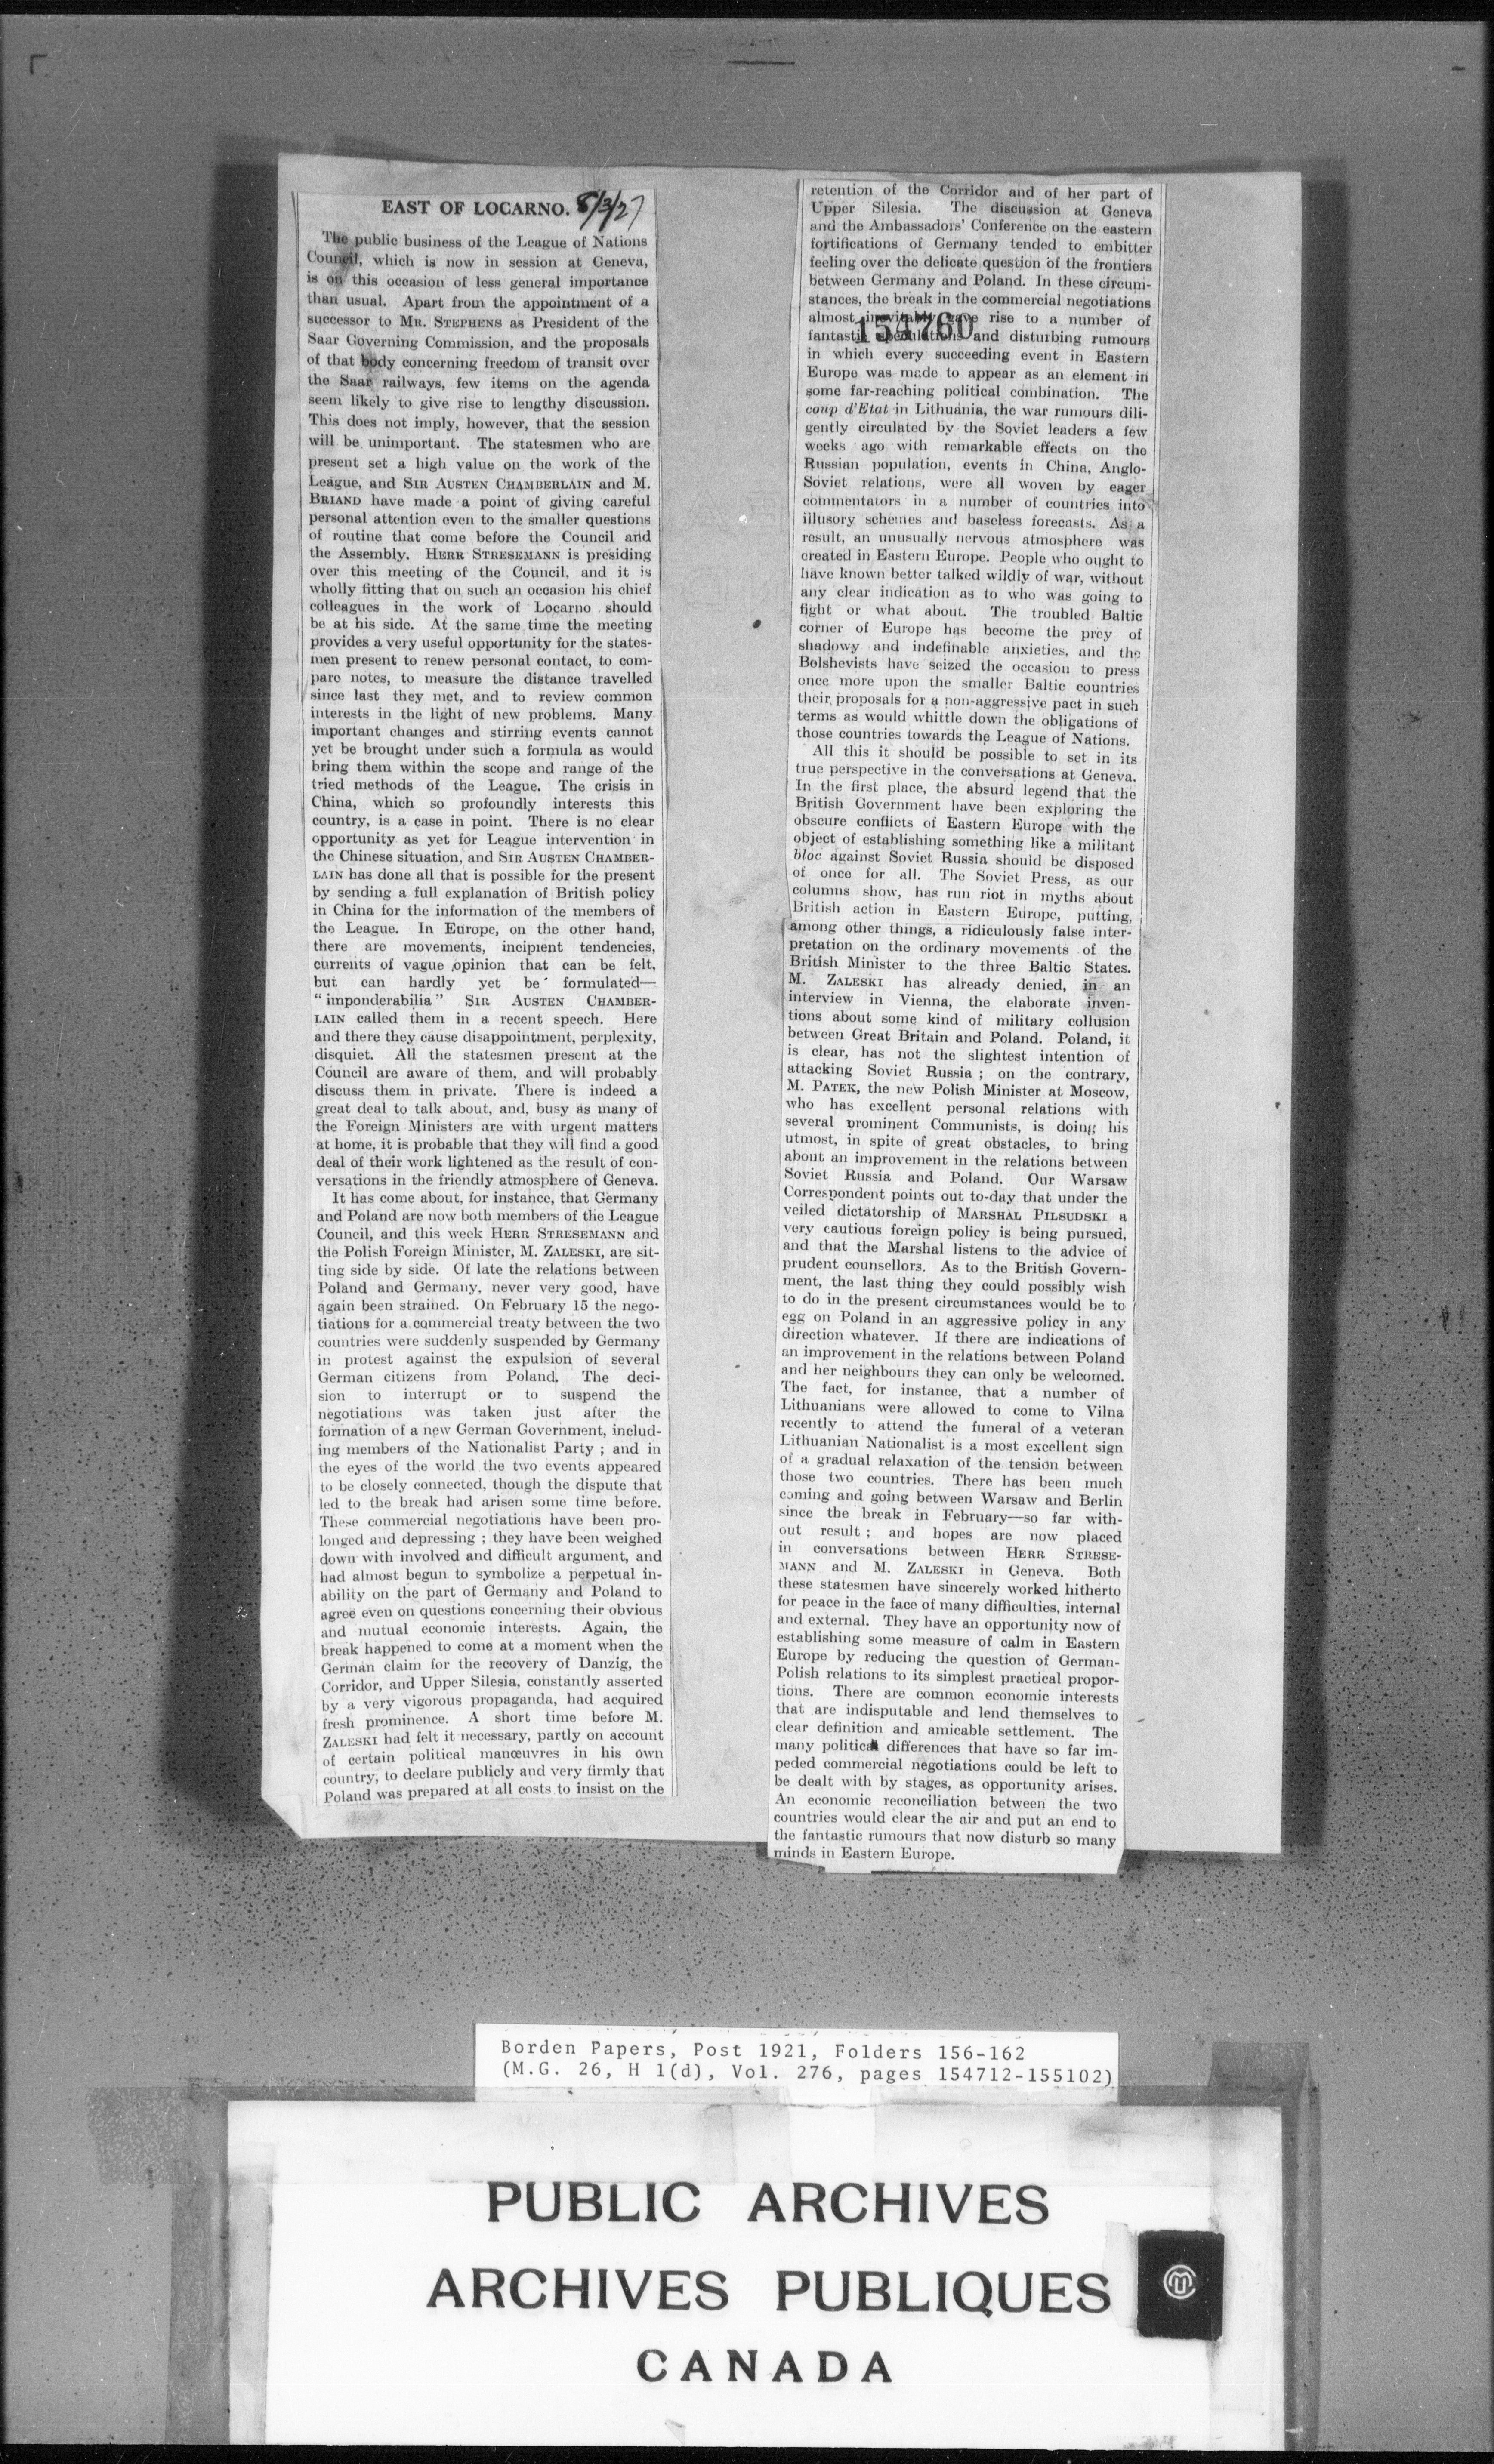 EAST OF LOCARNO. 8/3/27
The public business of the League of Nations
Council, which is now in session at Geneva,
is on this occasion of less general importance
than usual. Apart from the appointment of a
successor to MR. STEPHENS as President of the
Saar Governing Commission, and the proposals
of that body concerning freedom of transit over
the Saar railways, few items on the agenda
seem likely to give rise to lengthy discussion.
This does not imply, however, that the session
will be unimportant. The statesmen who are
present set a high value on the work of the
League, and SIR AUSTEN CHAMBERLAIN and M.
BRIAND have made a point of giving careful
personal attention even to the smaller questions
of routine that come before the Council and
the Assembly. HERR STRESEMANN is presiding
over this meeting of the Council, and it is
wholly fitting that on such an occasion his chief
colleagues in the work of Locarno should
be at his side. At the same time the meeting
provides a very useful opportunity for the states-
men present to renew personal contact, to com-
pare notes, to measure the distance travelled
since last they met, and to review common
interests in the light of new problems. Many
important changes and stirring events cannot
yet be brought under such a formula as would
bring them within the scope and range of the
tried methods of the League. The crisis in
China, which so profoundly interests this
country, is a case in point. There is no clear
opportunity as yet for League intervention in
the Chinese situation, and SIR AUSTEN CHAMBER-
LAIN has done all that is possible for the present
by sending a full explanation of British policy
in China for the information of the members of
the League. In Europe, on the other hand,
there are movements, incipient tendencies,
currents of vague opinion that can be felt,
but can hardly yet be formulated—
"imponderabilia" SIR AUSTEN CHAMBER-
LAIN called them in a recent speech. Here
and there they cause disappointment, perplexity,
disquiet. All the statesmen present at the
Council are aware of them, and will probably
discuss them in private. There is indeed a
great deal to talk about, and, busy as many of
the Foreign Ministers are with urgent matters
at home, it is probable that they will find a good
deal of their work lightened as the result of con-
versations in the friendly atmosphere of Geneva.
It has come about, for instance, that Germany
and Poland are now both members of the League
Council, and this week HERR STRESEMANN and
the Polish Foreign Minister, M. ZALESKI, are sit-
ting side by side. Of late the relations between
Poland and Germany, never very good, have
again been strained. On February 15 the nego-
tiations for a commercial treaty between the two
countries were suddenly suspended by Germany
in protest against the expulsion of several
German citizens from Poland. The deci-
sion to interrupt or to suspend the
negotiations was taken just after the
formation of a new German Government, includ-
ing members of the Nationalist Party ; and in
the eyes of the world the two events appeared
to be closely connected, though the dispute that
led to the break had arisen some time before.
These commercial negotiations have been pro-
longed and depressing ; they have been weighed
down with involved and difficult argument, and
had almost begun to symbolize a perpetual in-
ability on the part of Germany and Poland to
agree even on questions concerning their obvious
and mutual economic interests. Again, the
break happened to come at a moment when the
German claim for the recovery of Danzig, the
Corridor, and Upper Silesia, constantly asserted
by a very vigorous propaganda, had acquired
fresh prominence. A short time before M.
ZALESKI had felt it necessary, partly on account
of certain political manœuvres in his own
country, to declare publicly and very firmly that
Poland was prepared at all costs to insist on the
retention of the Corridor and of her part of
Upper Silesia. The discussion at Geneva
and the Ambassadors' Conference on the eastern
fortifications of Germany tended to embitter
feeling over the delicate question of the frontiers
between Germany and Poland. In these circum-
stances, the break in the commercial negotiations
almost inevitably gave rise to a number of
154760
fantastic speculations and disturbing rumours
in which every succeeding event in Eastern
Europe was made to appear as an element in
some far-reaching political combination. The
coup d'Etat in Lithuania, the war rumours dili-
gently circulated by the Soviet leaders a few
weeks ago with remarkable effects on the
Russian population, events in China, Anglo-
Soviet relations, were all woven by eager
commentators in a number of countries into
illusory schemes and baseless forecasts. As a
result, an unusually nervous atmosphere was
created in Eastern Europe. People who ought to
have known better talked wildly of war, without
any clear indication as to who was going to
fight or what about. The troubled Baltic
corner of Europe has become the prey of
shadowy and indefinable anxieties, and the
Bolshevists have seized the occasion to press
once more upon the smaller Baltic countries
their proposals for a non-aggressive pact in such
terms as would whittle down the obligations of
those countries towards the League of Nations.
All this it should be possible to set in its
true perspective in the conversations at Geneva.
In the first place, the absurd legend that the
British Government have been exploring the
obscure conflicts of Eastern Europe with the
object of establishing something like a militant
bloc against Soviet Russia should be disposed
of once for all. The Soviet Press, as our
columns show, has run riot in myths about
British action in Eastern Europe, putting,
among other things, a ridiculously false inter-
pretation on the ordinary movements of the
British Minister to the three Baltic States.
M. ZALESKI has already denied, in an
interview in Vienna, the elaborate inven-
tions about some kind of military collusion
between Great Britain and Poland. Poland, it
is clear, has not the slightest intention of
attacking Soviet Russia ; on the contrary,
M. PATEK, the new Polish Minister at Moscow,
who has excellent personal relations with
several prominent Communists, is doing his
utmost, in spite of great obstacles, to bring
about an improvement in the relations between
Soviet Russia and Poland. Our Warsaw
Correspondent points out to-day that under the
veiled dictatorship of MARSHAL PILSUDSKI a
very cautious foreign policy is being pursued,
and that the Marshal listens to the advice of
prudent counsellors. As to the British Govern-
ment, the last thing they could possibly wish
to do in the present circumstances would be to
egg on Poland in an aggressive policy in any
direction whatever. If there are indications of
an improvement in the relations between Poland
and her neighbours they can only be welcomed.
The fact, for instance, that a number of
Lithuanians were allowed to come to Vilna
recently to attend the funeral of a veteran
Lithuanian Nationalist is a most excellent sign
of a gradual relaxation of the tension between
those two countries. There has been much
coming and going between Warsaw and Berlin
since the break in February—so far with-
out result ; and hopes are now placed
in conversations between HERR STRESE-
MANN and M. ZALESKI in Geneva. Both
these statesmen have sincerely worked hitherto
for peace in the face of many difficulties, internal
and external. They have an opportunity now of
establishing some measure of calm in Eastern
Europe by reducing the question of German-
Polish relations to its simplest practical propor-
tions. There are common economic interests
that are indisputable and lend themselves to
clear definition and amicable settlement. The
many political differences that have so far im-
peded commercial negotiations could be left to
be dealt with by stages, as opportunity arises.
An economic reconciliation between the two
countries would clear the air and put an end to
the fantastic rumours that now disturb so many
minds in Eastern Europe.
Borden Papers, Post 1921, Folders 156-162
(M.G. 26, H 1(d), Vol. 276, pages 154712-155102)
PUBLIC ARCHIVES
ARCHIVES PUBLIQUES
CANADA